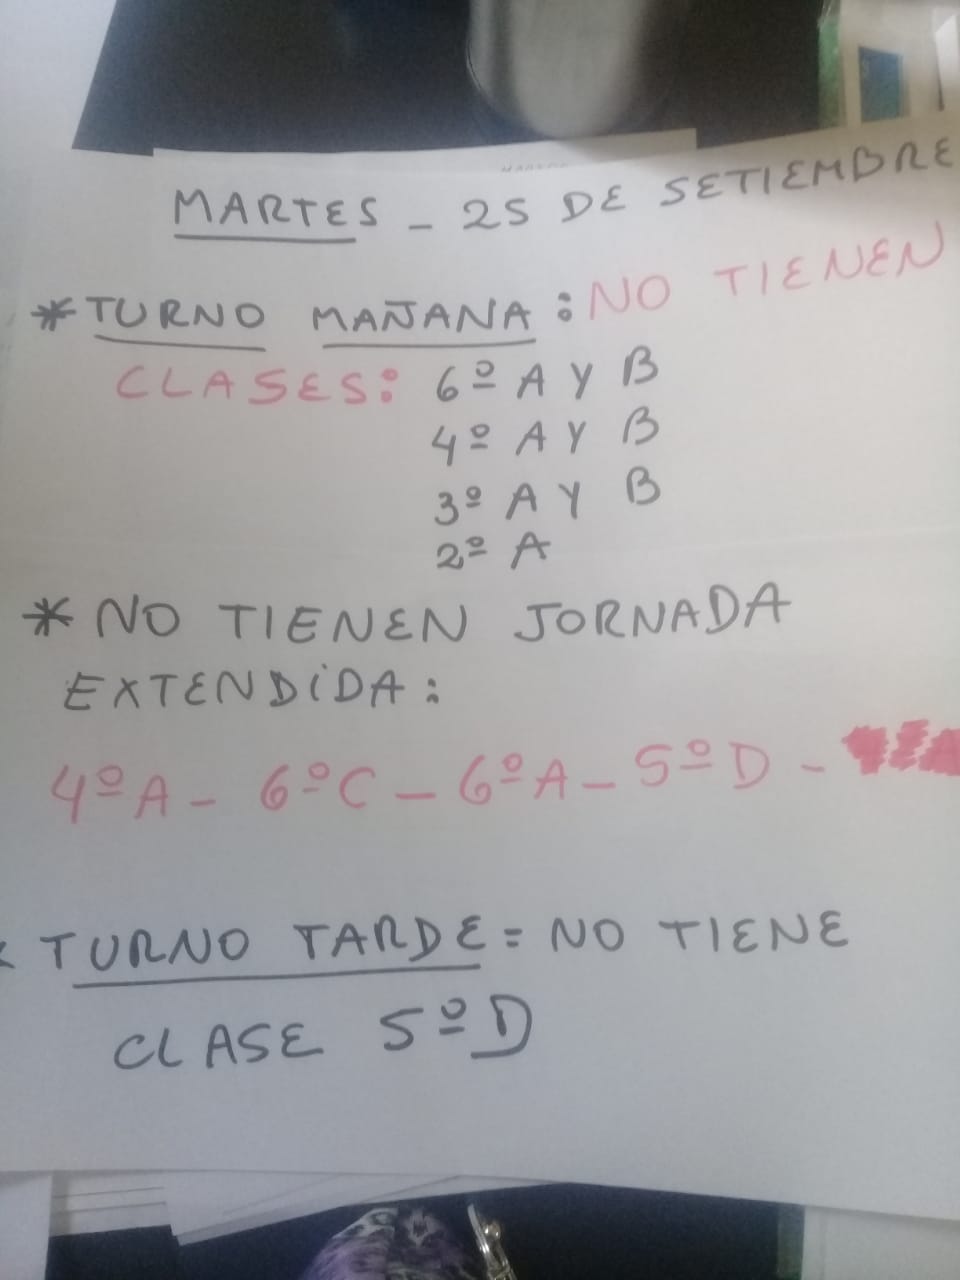 MARTES - 25 DE SETIEMBRE
* TURNO MAÑANA: NO TIENEN
CLASES: 6º A Y B
4º A Y B
3º A Y B
2º A
* NO TIENEN JORNADA
EXTENDIDA:
4º A - 6º C - 6º A - 5º D -
* TURNO TARDE = NO TIENE
CLASE 5º D